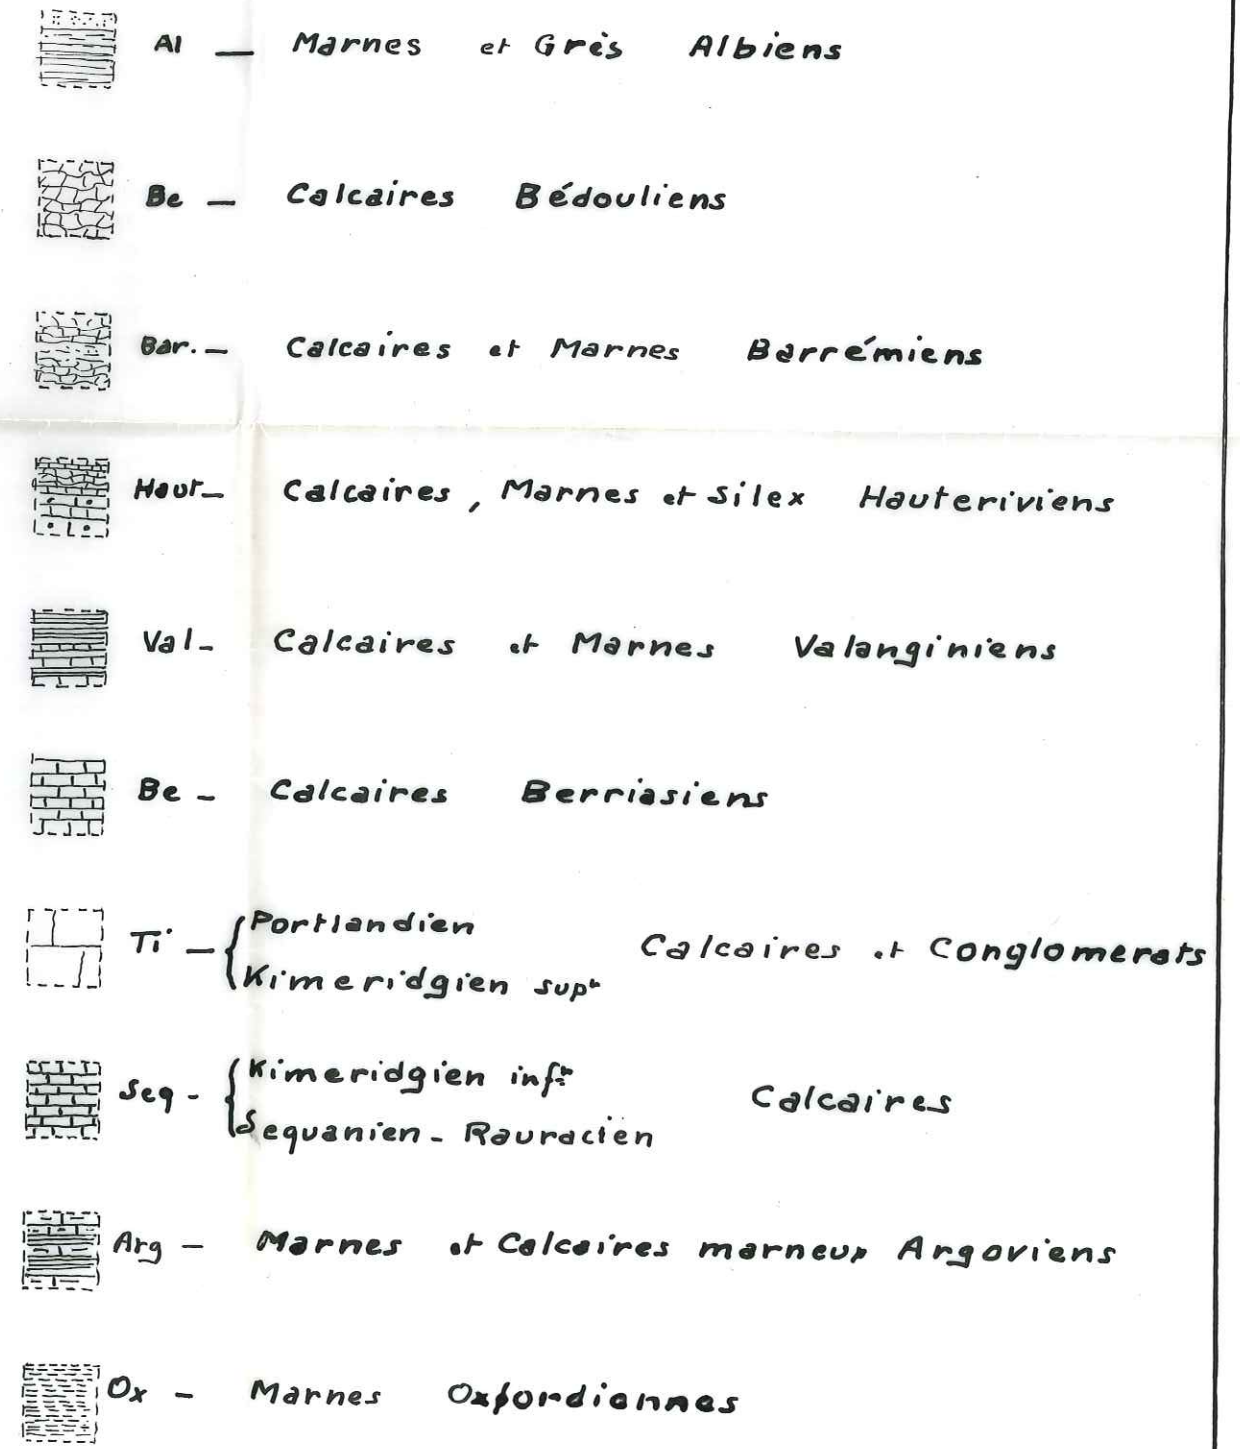 Al — Marnes et Grès Albiens
Be — Calcaires Bédouliens
Bar. — Calcaires et Marnes Barrémiens
Haut — Calcaires, Marnes et Silex Hauteriviens
Val - Calcaires et Marnes Valanginiens
Be - Calcaires Berriasiens
Ti — { Portlandien
Kimeridgien supr
Calcaires et Conglomerats
Seq - { Kimeridgien infr
Sequanien - Rauracien
Calcaires
Arg — Marnes et Calcaires marneux Argoviens
Ox - Marnes Oxfordiennes